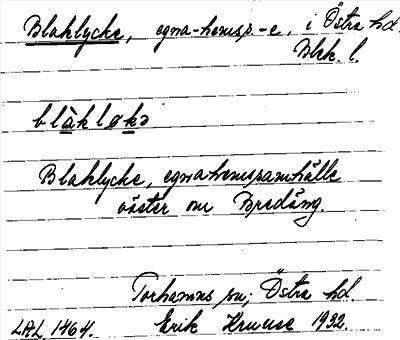 Blaklycke, egna-hemsp.-e, i Östra hd.
Blek. l.
blàkløkə
Blaklycke, egnahemssamhälle
väster om Bredäng.
Torhamns sn; Östra hd.
LAL. 1464. Erik Kruuse 1932.